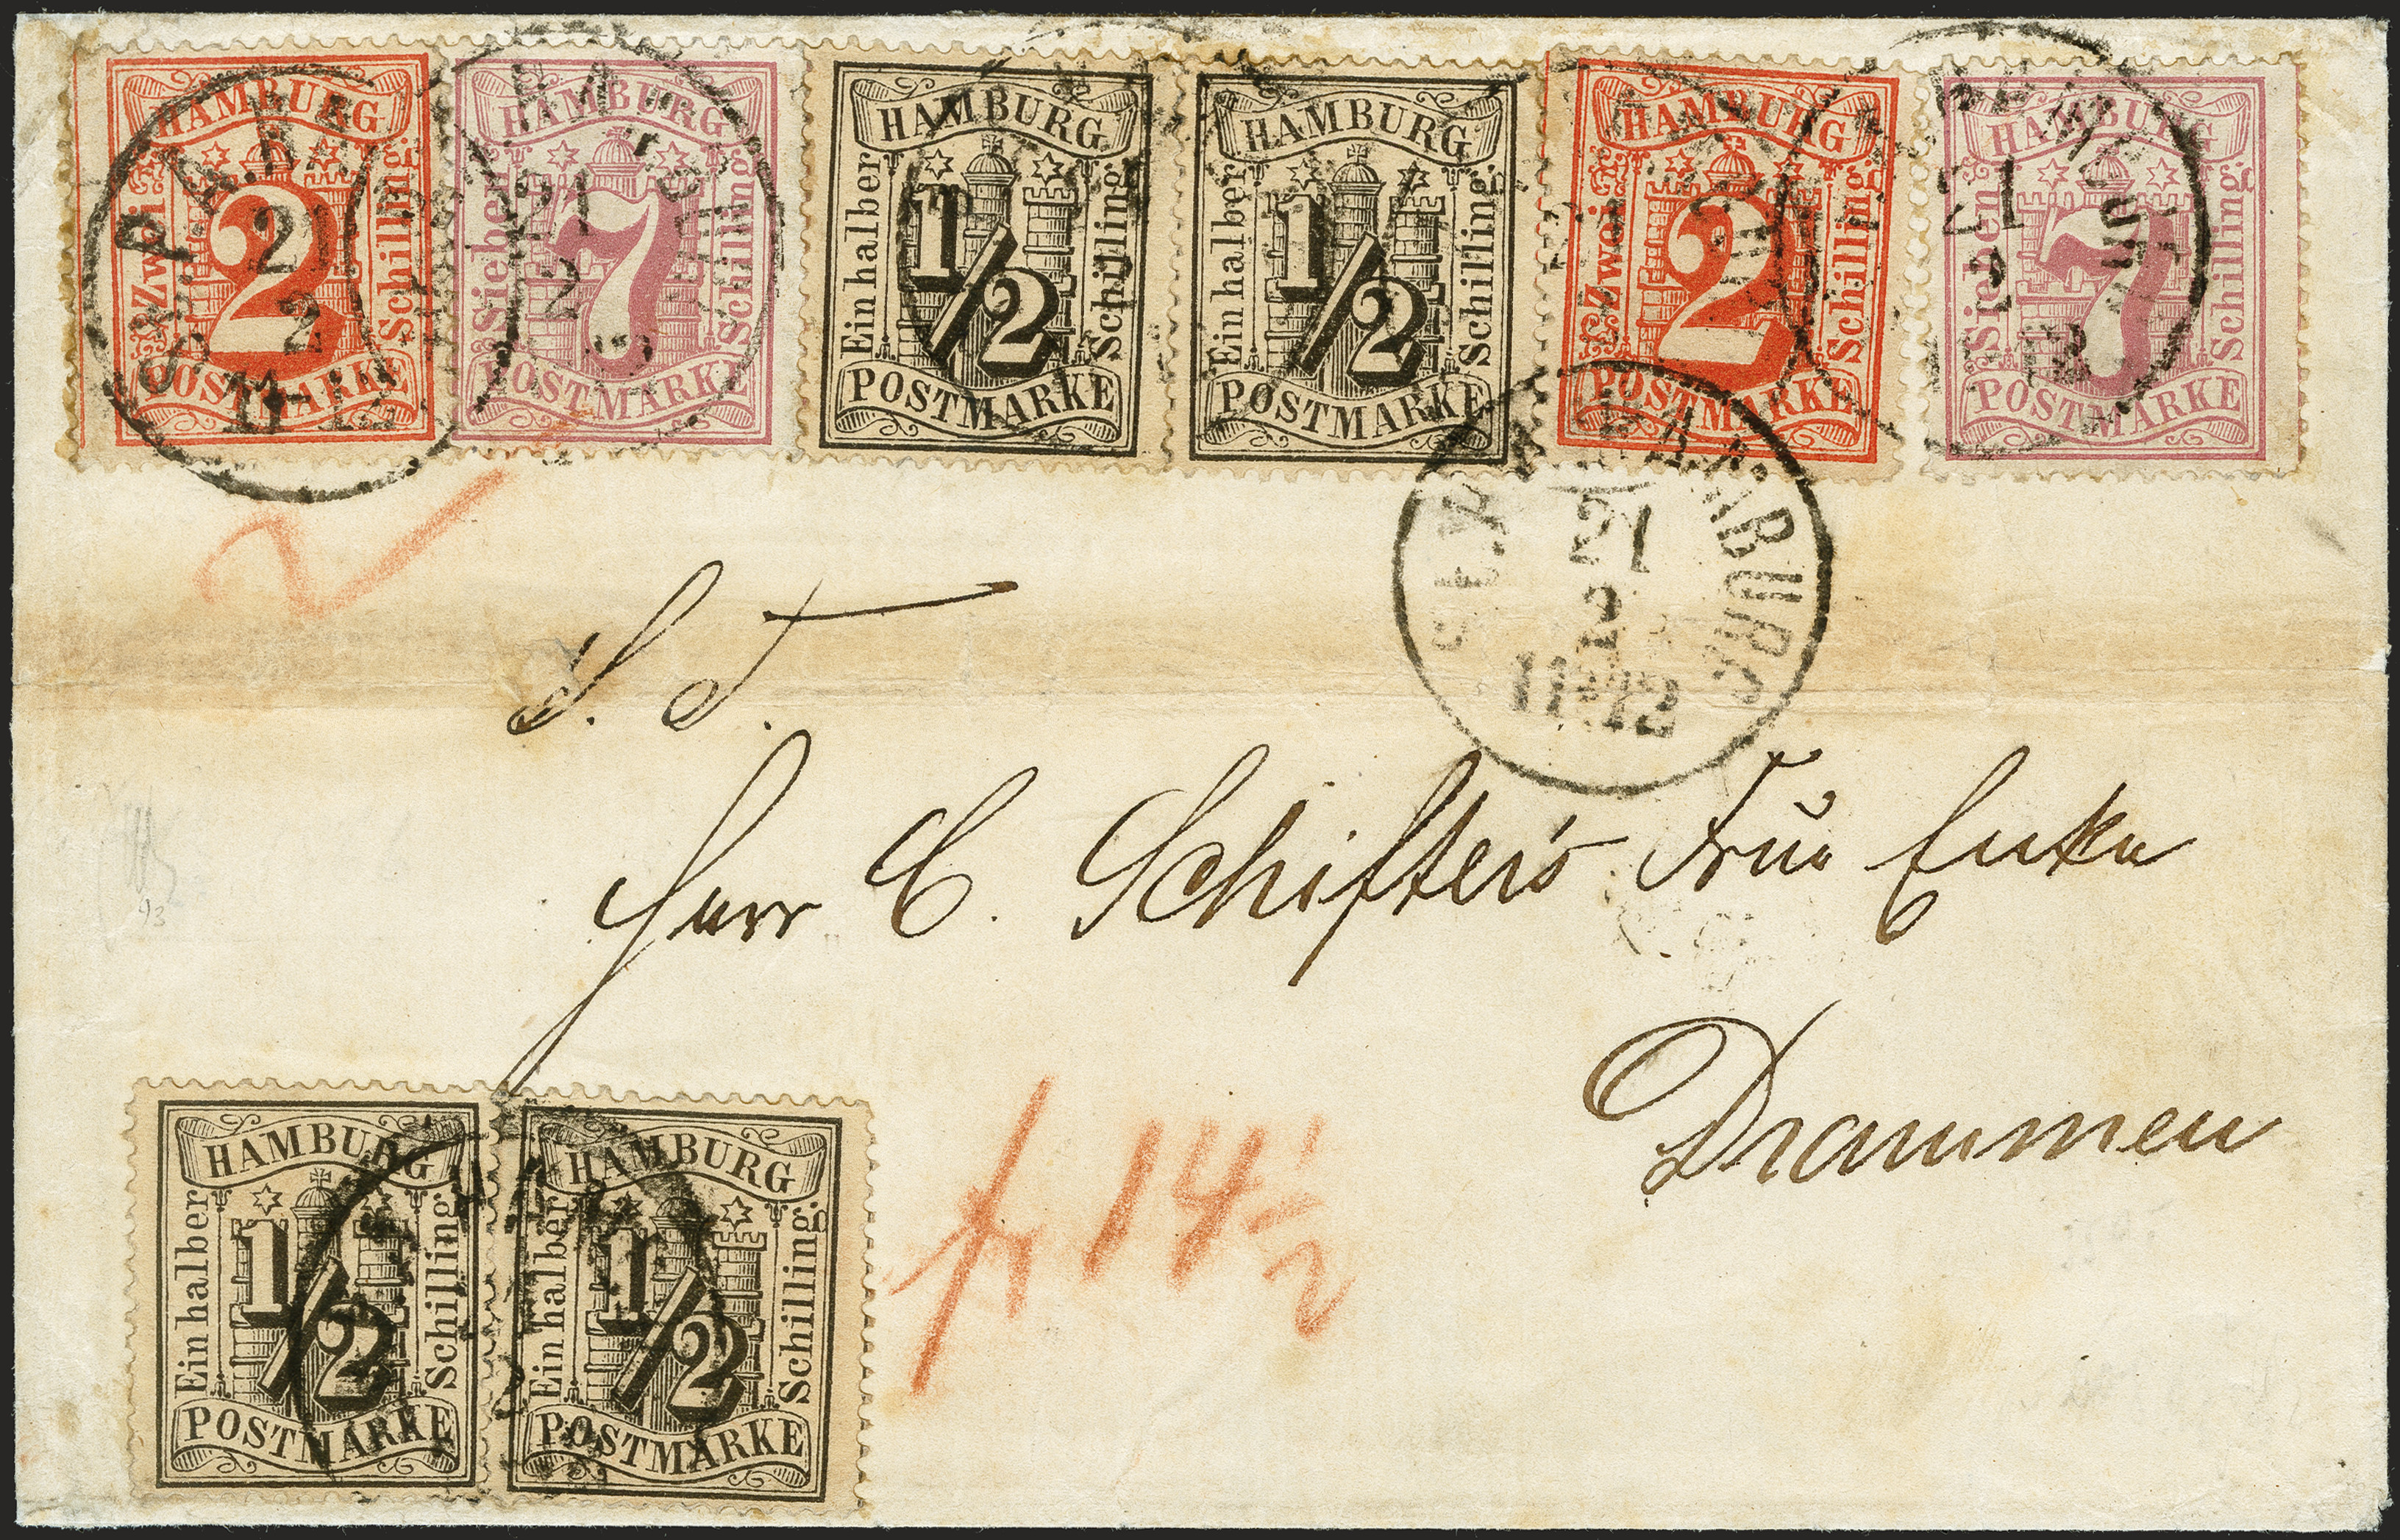 HAMBURG Zwei 2 Schilling POSTMARKE
HAMBURG Sieben 7 Schilling POSTMARKE
HAMBURG Ein halber 1/2 Schilling POSTMARKE
HAMBURG Ein halber 1/2 Schilling POSTMARKE
HAMBURG Zwei 2 Schilling POSTMARKE
HAMBURG Sieben 7 Schilling POSTMARKE
21
2
21
2
HAMBURG
21
2
11-12
S. T.
Herr C. Schifter's Frue Enke
Drammen
HAMBURG Ein halber 1/2 Schilling POSTMARKE
HAMBURG Ein halber 1/2 Schilling POSTMARKE
fr 14 1/2
93